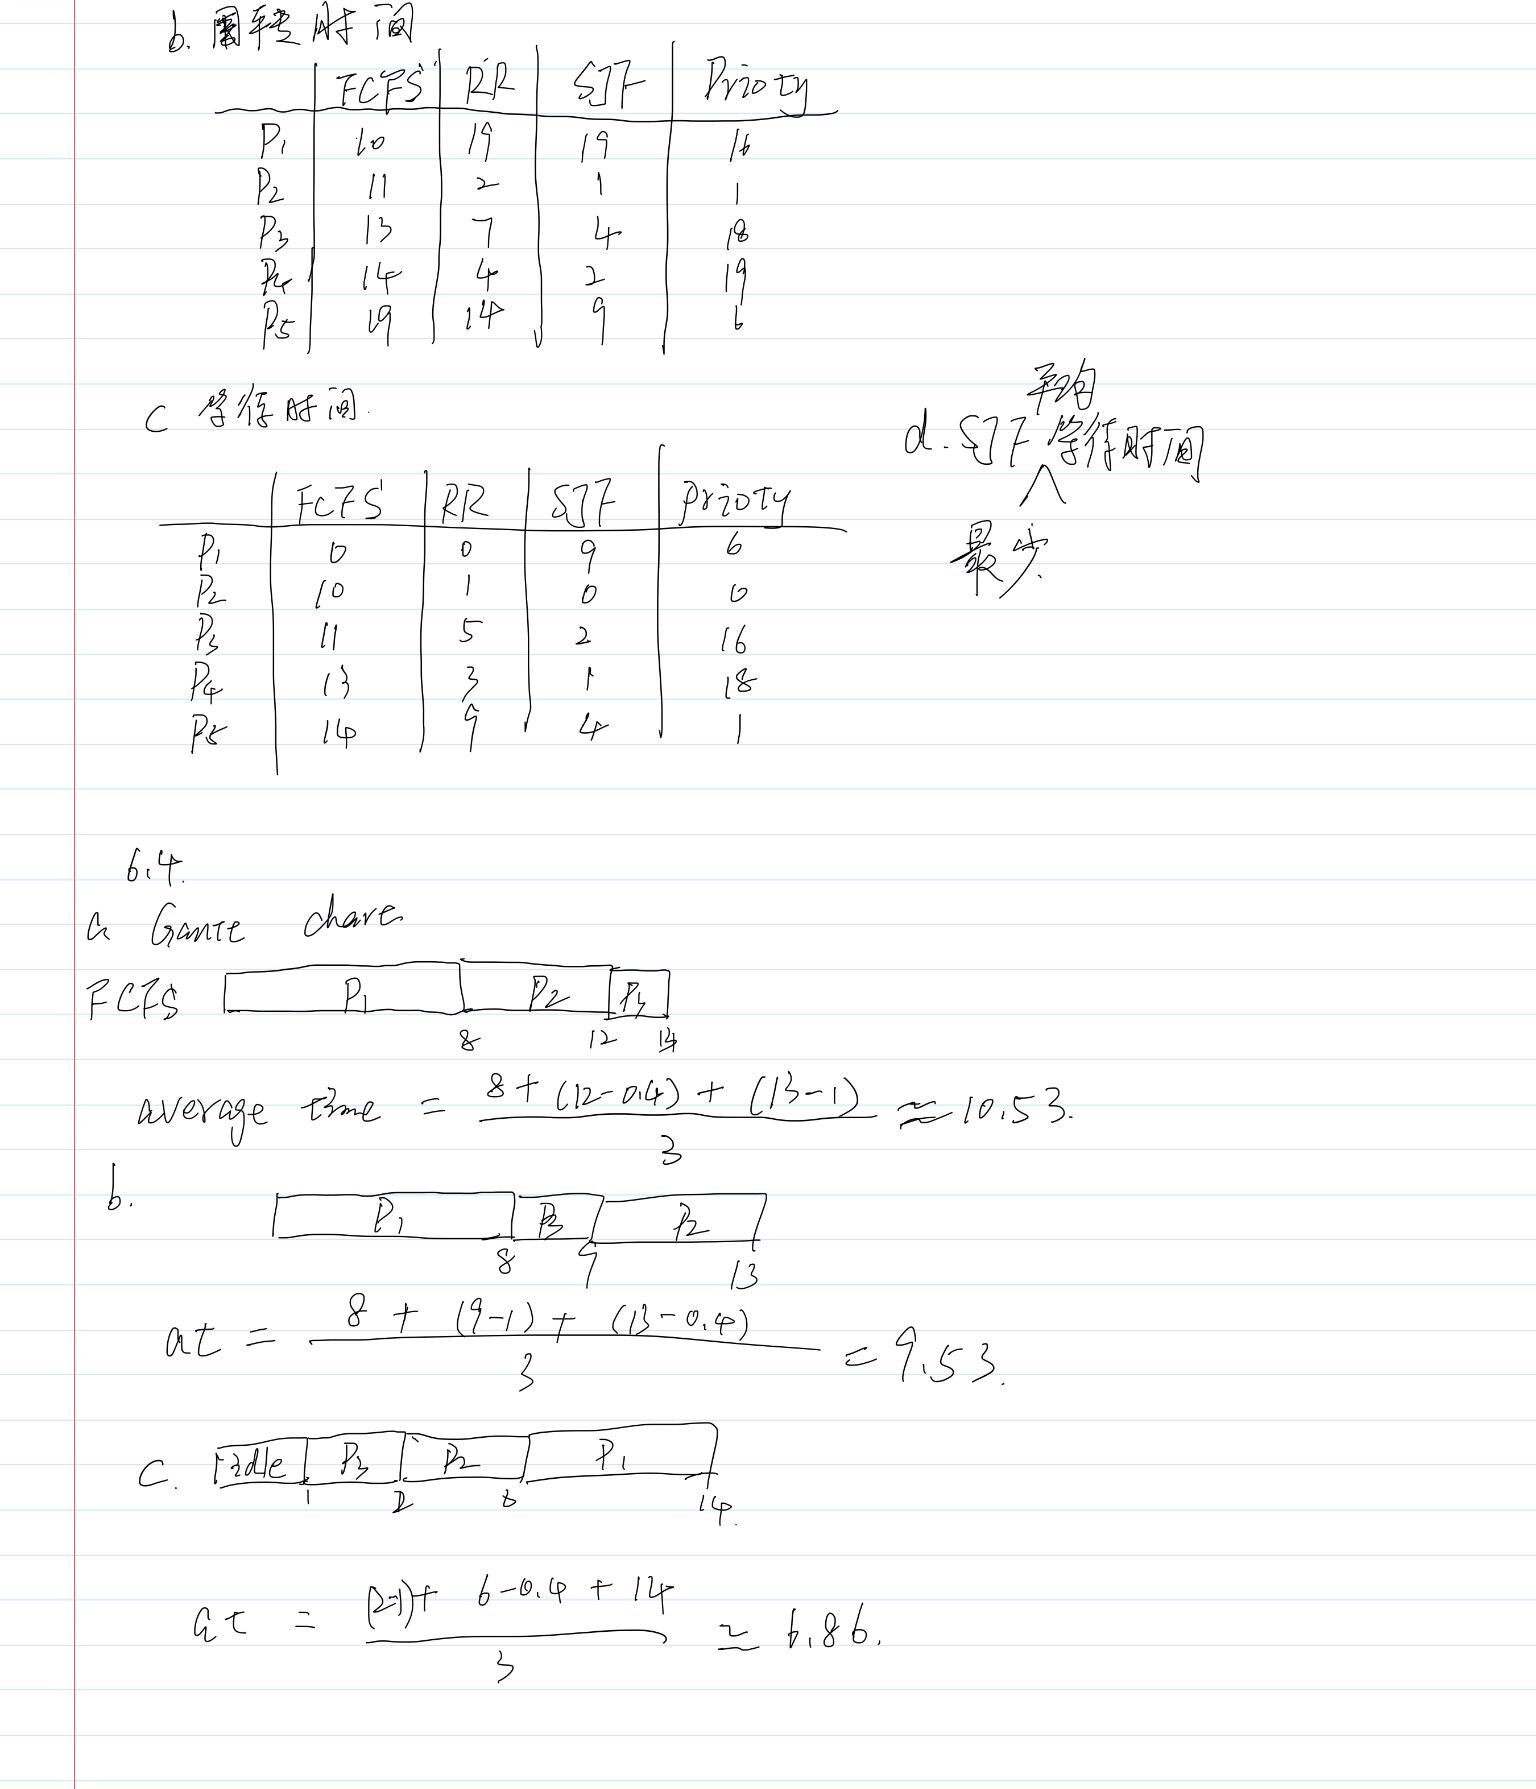 b. 周转时间
FCFS RR SJF Prioty
P1 10 19 19 16
P2 11 2 1 1
P3 13 7 4 18
P4 14 4 2 19
P5 19 14 9 6
c 等待时间.
d. SJF 平均等待时间
最少.
FCFS RR SJF Prioty
P1 0 0 9 6
P2 10 1 0 0
P3 11 5 2 16
P4 13 3 1 18
P5 14 9 4 1
6.4.
a Gante chart
FCFS P1 P2 P3
8 12
average time = (8 + (12-0.4) + (13-1)) / 3 ≈ 10.53.
b.
P1 P3 P2
8 9 13
at = (8 + (9-1) + (13-0.4)) / 3 = 9.53.
c. idle P3 P2 P1
1 2 6 14.
at = ((2-1) + 6-0.4 + 14) / 3 ≃ 6.86.